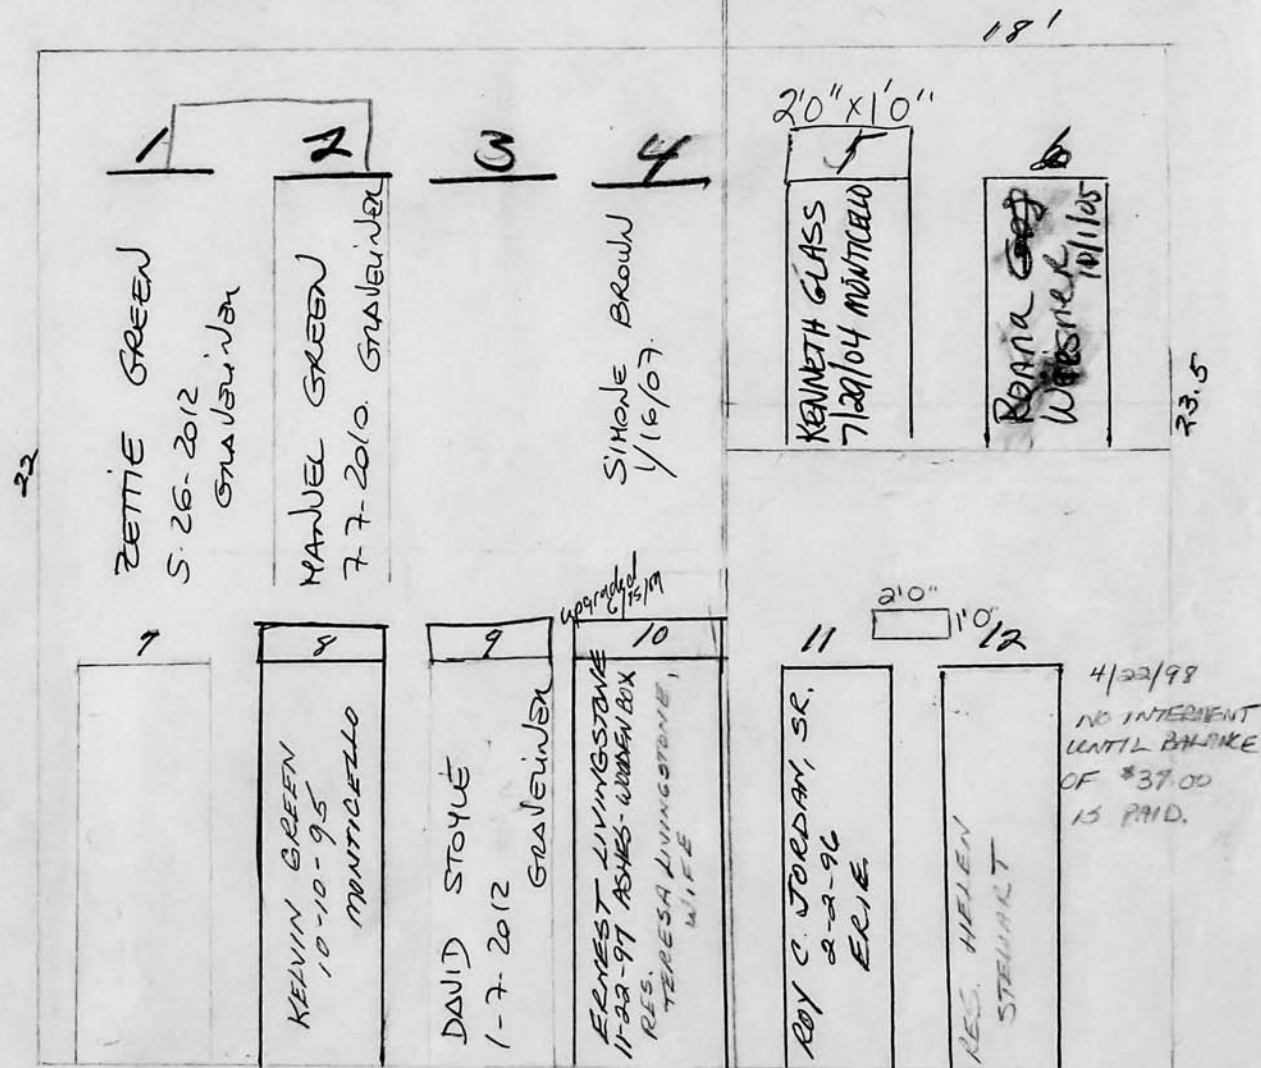 18'
2'0" X 1'0"
1
2
3
4
5
6
ZETTIE GREEN
5-26-2012
GRAVELINER
MANUEL GREEN
7-7-2010. GRAVELINER
SIMONE BROWN
1/16/07.
KENNETH GLASS
7/29/04 MONTICELLO
ROANA
10/1/05
22
23.5
upgraded
7
8
9
10
11
2'0"
1'0"
12
KELVIN GREEN
10-10-95
MONTICELLO
DAVID STOYLE
1-7-2012
GRAVELINER
ERNEST LIVINGSTONE
11-22-97 ASHES-WOODEN BOX
RES.
TERESA LIVINGSTONE,
WIFE
ROY C. JORDAN, SR.
2-2-96
ERIE
RES. HELEN
STEWART
4/22/98
NO INTERMENT
UNTIL BALANCE
OF $37.00
IS PAID.